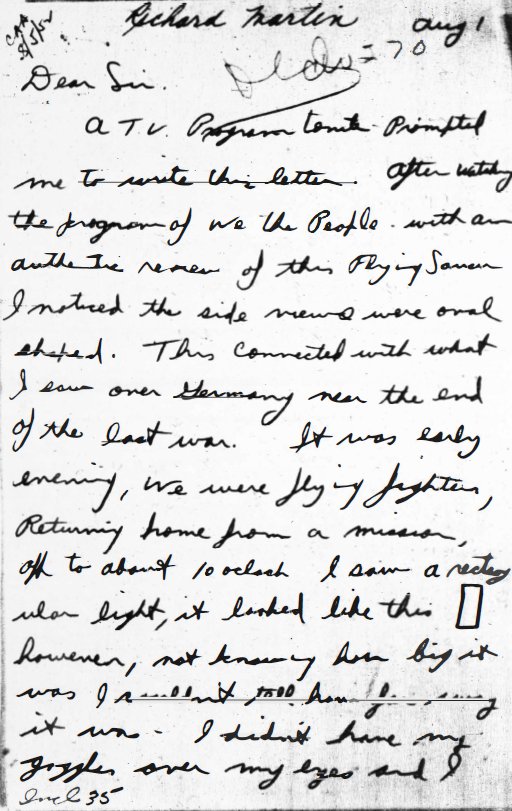 Richard Martin Aug 1
8/5/52
= 70
Dear Sir.
A T.V. Program tonite Prompted
me to write this letter. After watching
the program of We the People. with an
authentic review of this Flying Saucer
I noticed the side views were oval
shaped. This connected with what
I saw over Germany near the end
of the last war. It was early
evening, we were flying fighters,
Returning home from a mission,
off to about 10 oclock I saw a rectang
ular light, it looked like this
however, not knowing how big it
was I couldn't tell how far away
it was. I didn't have my
goggles over my eyes and I
Incl 35